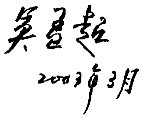 吴孟超
2003年3月